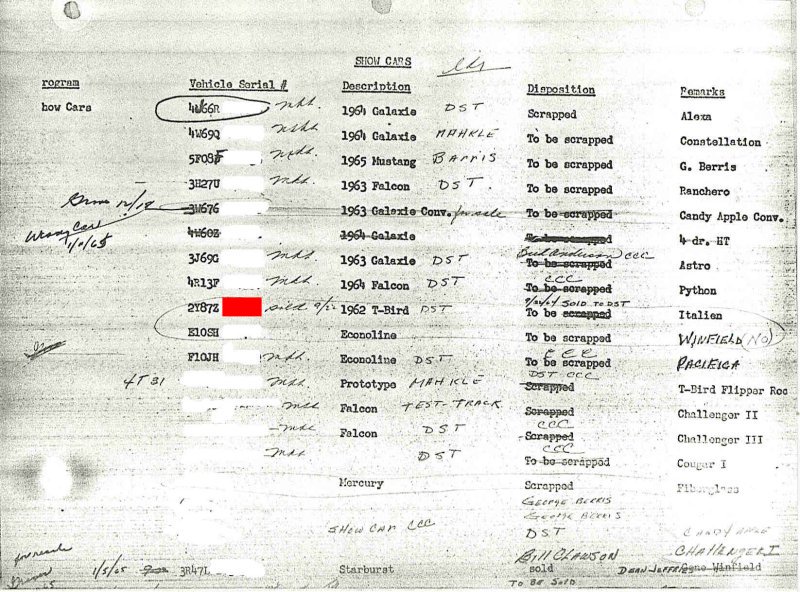 SHOW CARS
rogram Vehicle Serial # Description Disposition Remarks
how Cars 4W66R 1964 Galaxie DST Scrapped Alexa
4W69Q 1964 Galaxie MAHKLE To be scrapped Constellation
5F08F 1965 Mustang BARRIS To be scrapped G. Berris
3H27U 1963 Falcon DST. To be scrapped Ranchero
3W676 1963 Galaxie Conv. for sale To be scrapped Candy Apple Conv.
Wrong Car 4W60Z 1964 Galaxie To be scrapped 4 dr. HT
3J69G 1963 Galaxie DST Bud Anderson CCC To be scrapped Astro
4R13F 1964 Falcon DST CCC To be scrapped Python
2Y87Z sold 9/22 1962 T-Bird DST SOLD TO DST To be scrapped Italien
E10SH Econoline To be scrapped WINFIELD (NO)
F10JH Econoline DST CCC To be scrapped PACIFICA
4T31 Prototype MAHKLE DST CCC Scrapped T-Bird Flipper Roo
Falcon TEST-TRACK Scrapped Challenger II
Falcon DST CCC Scrapped Challenger III
DST CCC To be scrapped Cougar I
Mercury Scrapped Fiberglass
GEORGE BERRIS
GEORGE BERRIS
SHOW CAR CCC DST CANDY APPLE
for resale BILL CLAWSON CHALLENGER I
1/5/65 3R47L Starburst sold DEAN JEFFRIES Gene Winfield
TO BE SOLD